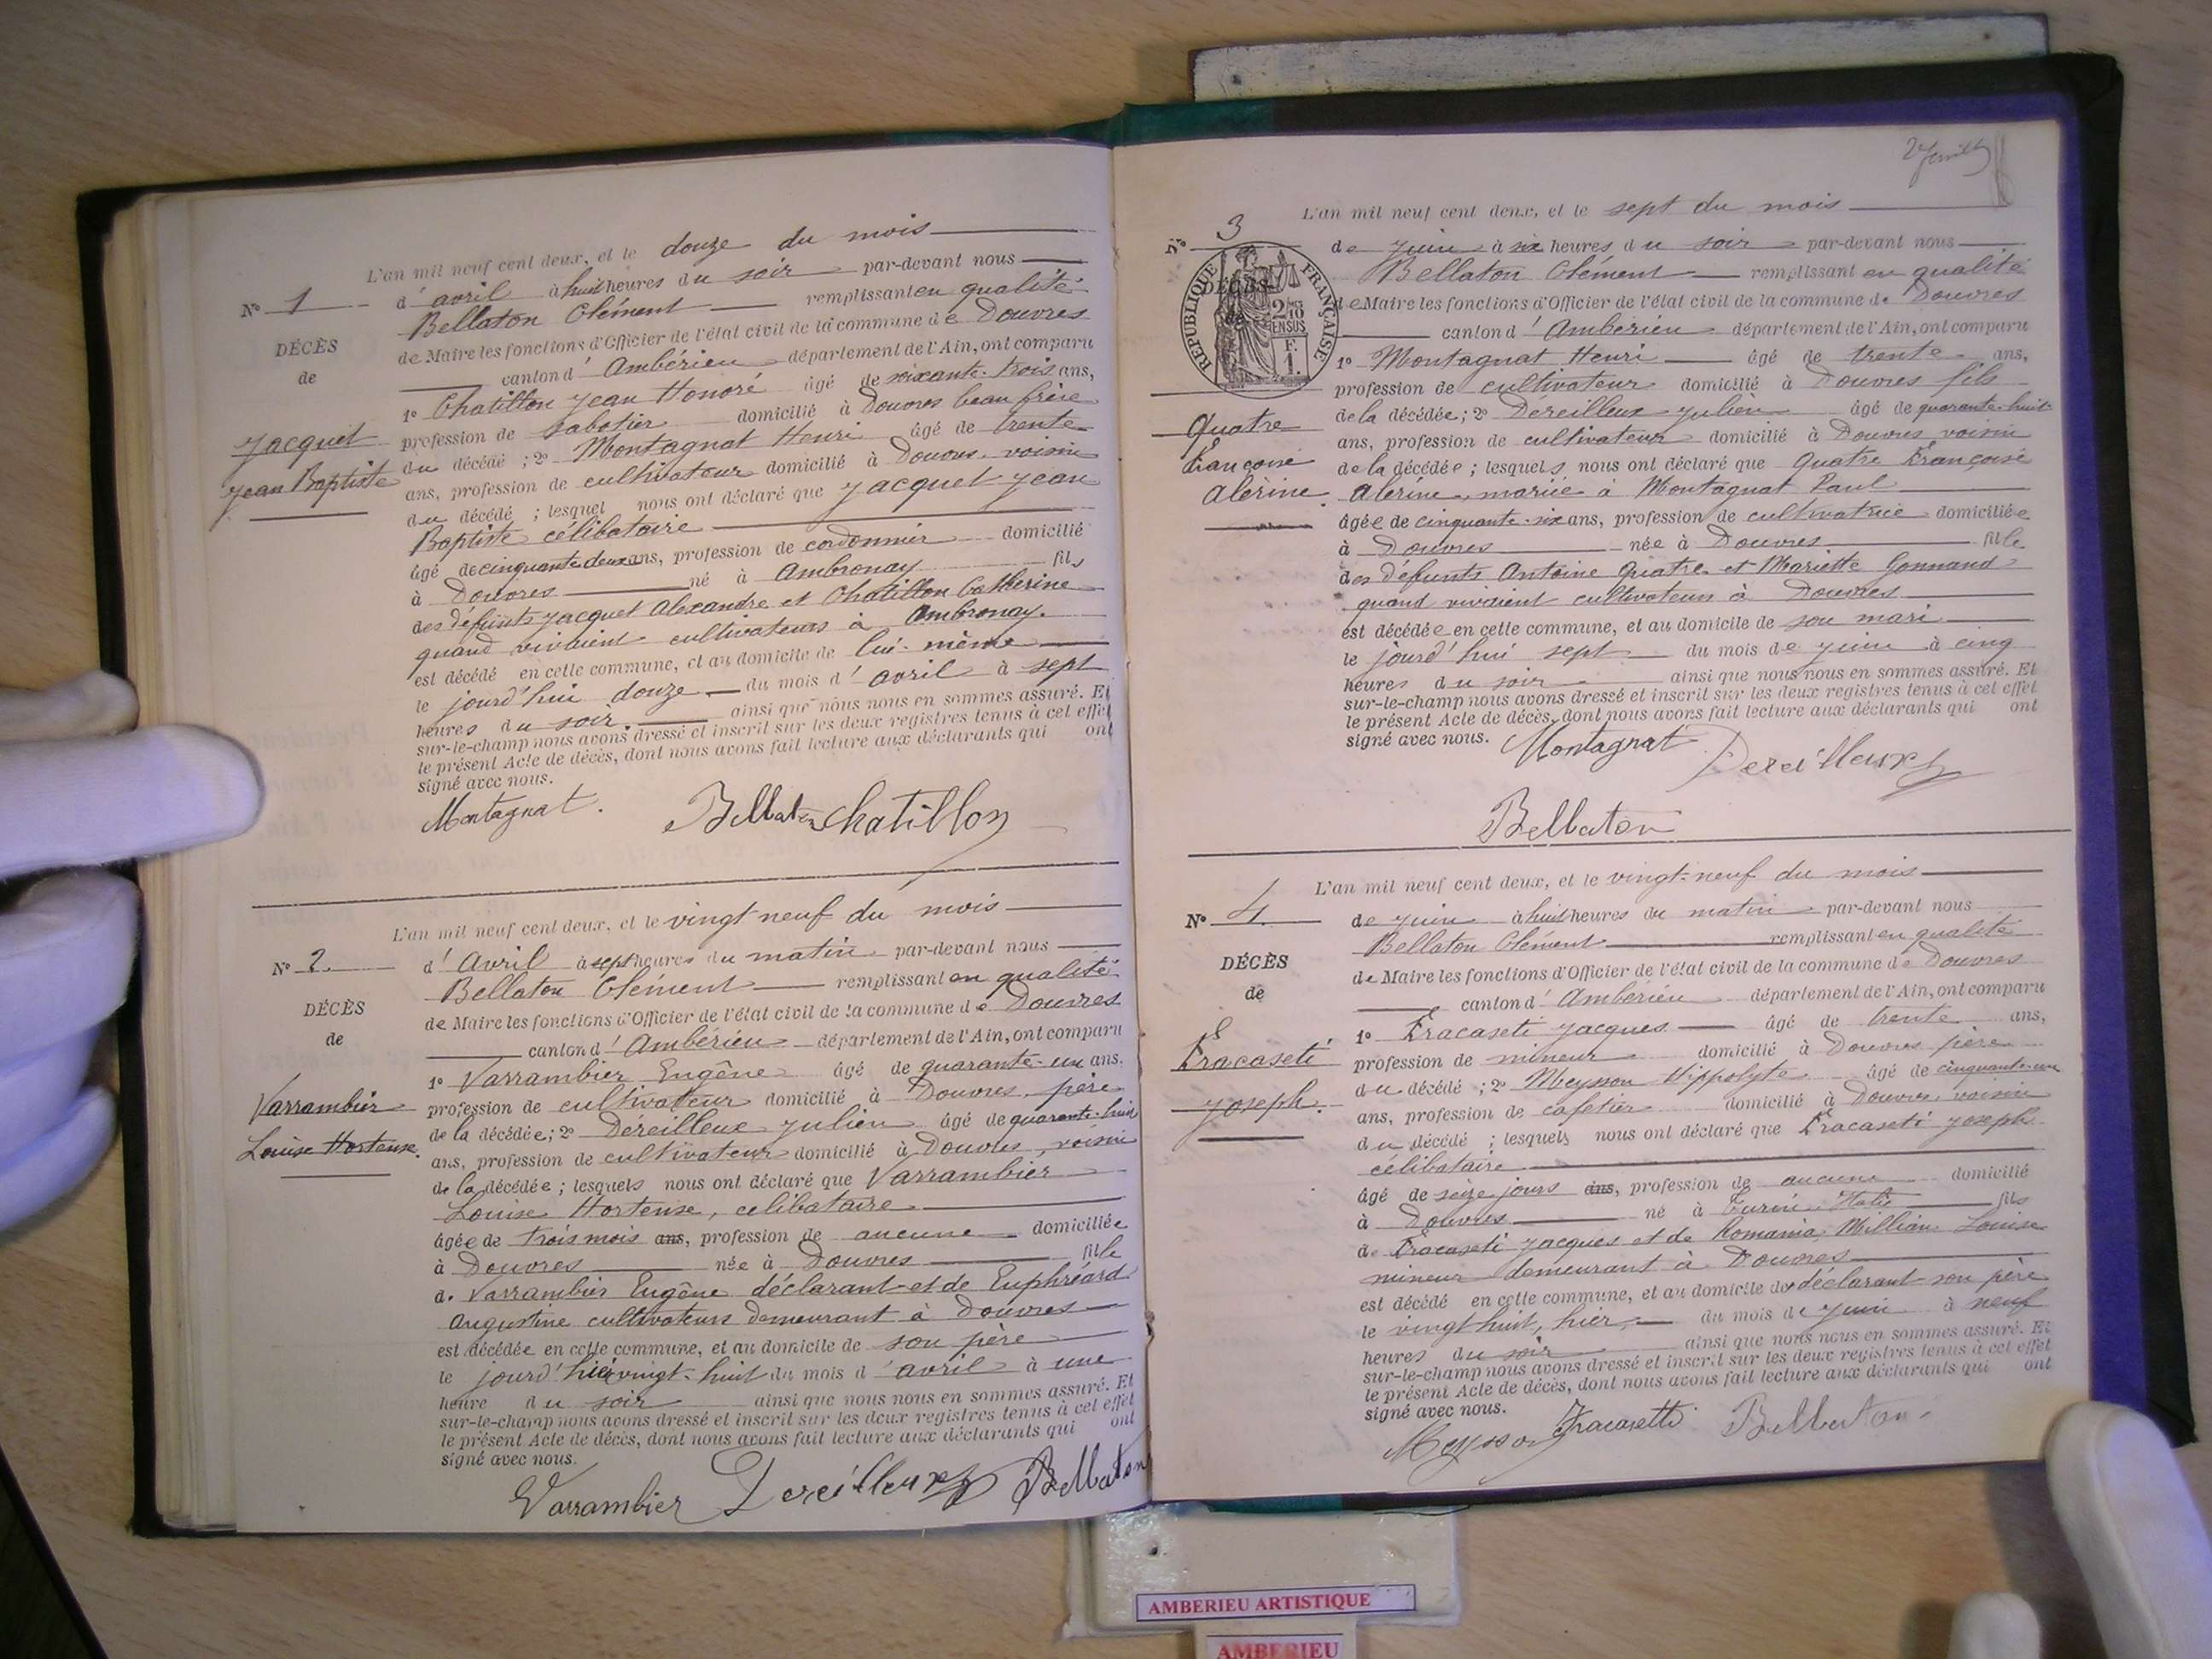 L'an mil neuf cent deux, et le douze du mois
N° 1 d'avril à huit heures du soir par-devant nous
Bellaton Clément remplissant en qualité
DÉCÈS de Maire les fonctions d'Officier de l'état civil de la commune de Douvres
de canton d'Ambérieu département de l'Ain, ont comparu
1° Chatillon Jean Honoré âgé de soixante-trois ans,
Jacquet profession de sabotier domicilié à Douvres beau frère
du décédé ; 2° Montagnat Henri âgé de trente
Jean Baptiste ans, profession de cultivateur domicilié à Douvres, voisin
du décédé ; lesquel nous ont déclaré que Jacquet Jean
Baptiste célibataire
âgé de cinquante deux ans, profession de cordonnier domicilié
à Douvres né à Ambronay fils
des défunts Jacquet Alexandre et Chatillon Catherine
quand vivaient cultivateurs à Ambronay.
est décédé en cette commune, et au domicile de lui-même
le jourd'hui douze du mois d'avril à sept
heures du soir. ainsi que nous nous en sommes assuré. Et
sur-le-champ nous avons dressé et inscrit sur les deux registres tenus à cet effet
le présent Acte de décès, dont nous avons fait lecture aux déclarants qui ont
signé avec nous.
Montagnat. Bellaton Chatillon
L'an mil neuf cent deux, et le vingt neuf du mois
N° 2. d'Avril à sept heures du matin par-devant nous
Bellaton Clément remplissant en qualité
DÉCÈS de Maire les fonctions d'Officier de l'état civil de la commune de Douvres
de canton d'Ambérieu département de l'Ain, ont comparu
1° Varrambier Eugène âgé de quarante-un ans.
Varrambier profession de cultivateur domicilié à Douvres, père
de la décédée ; 2° Dereilleux Julien âgé de quarante-huit
Louise Hortense. ans, profession de cultivateur domicilié à Douvres, voisin
de la décédée ; lesquels nous ont déclaré que Varrambier
Louise Hortense, célibataire
âgée de trois mois ans, profession de aucune domiciliée
à Douvres née à Douvres fille
de Varrambier Eugène déclarant et de Euphréard
Augustine cultivateurs demeurant à Douvres
est décédée en cette commune, et au domicile de son père
le jourd'hier vingt-huit du mois d'avril à une
heure du soir ainsi que nous nous en sommes assuré. Et
sur-le-champ nous avons dressé et inscrit sur les deux registres tenus à cet effet
le présent Acte de décès, dont nous avons fait lecture aux déclarants qui ont
signé avec nous.
Varrambier Dereilleux Bellaton
L'an mil neuf cent deux, et le sept du mois
N° 3 de Juin à six heures du soir par-devant nous
Bellaton Clément remplissant en qualité
DÉCÈS de Maire les fonctions d'Officier de l'état civil de la commune de Douvres
de canton d'Ambérieu département de l'Ain, ont comparu
RÉPUBLIQUE FRANÇAISE
2/10 EN SUS
F. 1.
1° Montagnat Henri âgé de trente ans,
profession de cultivateur domicilié à Douvres fils
Quatre de la décédée ; 2° Dereilleux Julien âgé de quarante-huit
ans, profession de cultivateur domicilié à Douvres voisin
Françoise de la décédée ; lesquels nous ont déclaré que Quatre Françoise
Alérine. Alérine, mariée à Montagnat Paul
âgée de cinquante-six ans, profession de cultivatrice domiciliée
à Douvres née à Douvres fille
des défunts Antoine Quatre et Mariette Gonnand
quand vivaient cultivateurs à Douvres
est décédée en cette commune, et au domicile de son mari.
le jourd'hui sept du mois de Juin à cinq
heures du soir ainsi que nous nous en sommes assuré. Et
sur-le-champ nous avons dressé et inscrit sur les deux registres tenus à cet effet
le présent Acte de décès, dont nous avons fait lecture aux déclarants qui ont
signé avec nous. Montagnat Dereilleux
Bellaton
L'an mil neuf cent deux, et le vingt-neuf du mois
N° 4. de Juin à huit heures du matin par-devant nous
Bellaton Clément remplissant en qualité
DÉCÈS de Maire les fonctions d'Officier de l'état civil de la commune de Douvres
de canton d'Ambérieu département de l'Ain, ont comparu
1° Fracaseti Jacques âgé de trente ans,
Fracaseti profession de mineur domicilié à Douvres père
du décédé ; 2° Meysson Hippolyte âgé de cinquante-un
Joseph. ans, profession de cafetier domicilié à Douvres, voisin
du décédé ; lesquels nous ont déclaré que Fracaseti Joseph
célibataire
âgé de seize jours ans, profession de aucune domicilié
à Douvres né à Turin, Italie fils
de Fracaseti Jacques et de Romania Millian Louise
mineur demeurant à Douvres
est décédé en cette commune, et au domicile du déclarant son père
le vingt huit, hier, du mois de Juin à neuf
heures du soir ainsi que nous nous en sommes assuré. Et
sur-le-champ nous avons dressé et inscrit sur les deux registres tenus à cet effet
le présent Acte de décès, dont nous avons fait lecture aux déclarants qui ont
signé avec nous.
Meysson Fracasetti Bellaton
AMBERIEU ARTISTIQUE
AMBERIEU